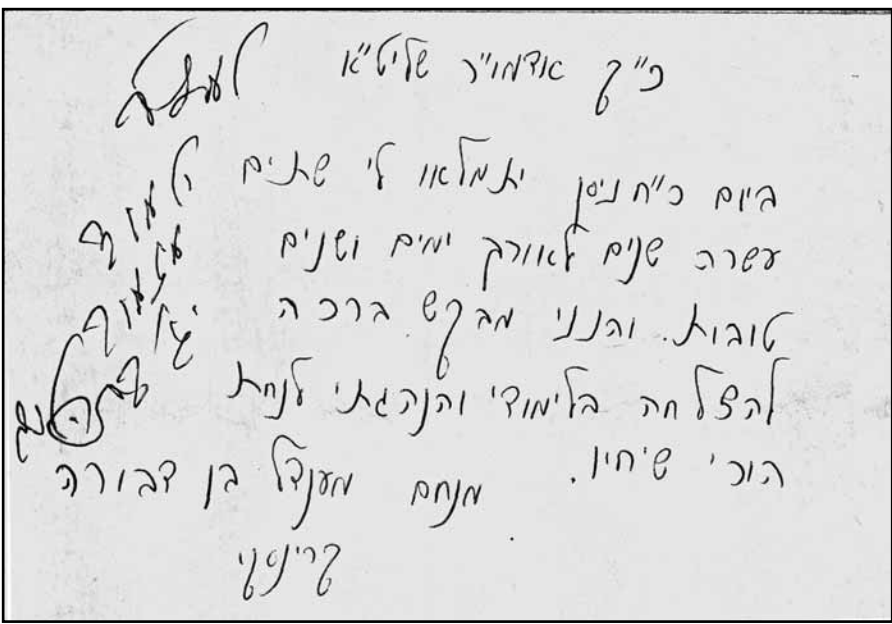 כ"ק אדמו"ר שליט"א
ביום כ"ח ניסן יתמלאו לי שתים
עשרה שנים לאורך ימים ושנים
טובות. והנני מבקש ברכה
להצלחה בלימודי והנהגתי לנחת
הורי שיחיו. מנחם מענדל בן דבורה
קרינסקי